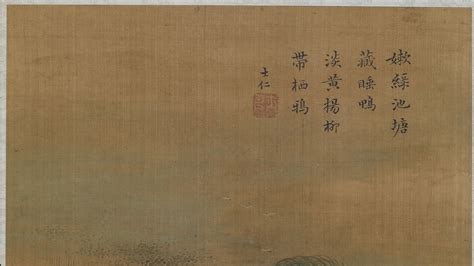 嫩綠池塘
藏睡鴨
淡黃楊柳
帶栖鴉
士仁